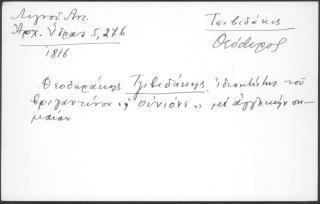 Λιγνοῦ Ἀντ.
Ἀρχ. Ὕδρας 5, 276
1816
Τσιβιδάκις
Θεόδωρος
Θεοδωράκης Τζιβιδάκης, ἰδιοκτήτης τοῦ
βριγαντίνου "ἡ οὐνιόνε", μὲ ἀγγλικὴν ση-
μαίαν